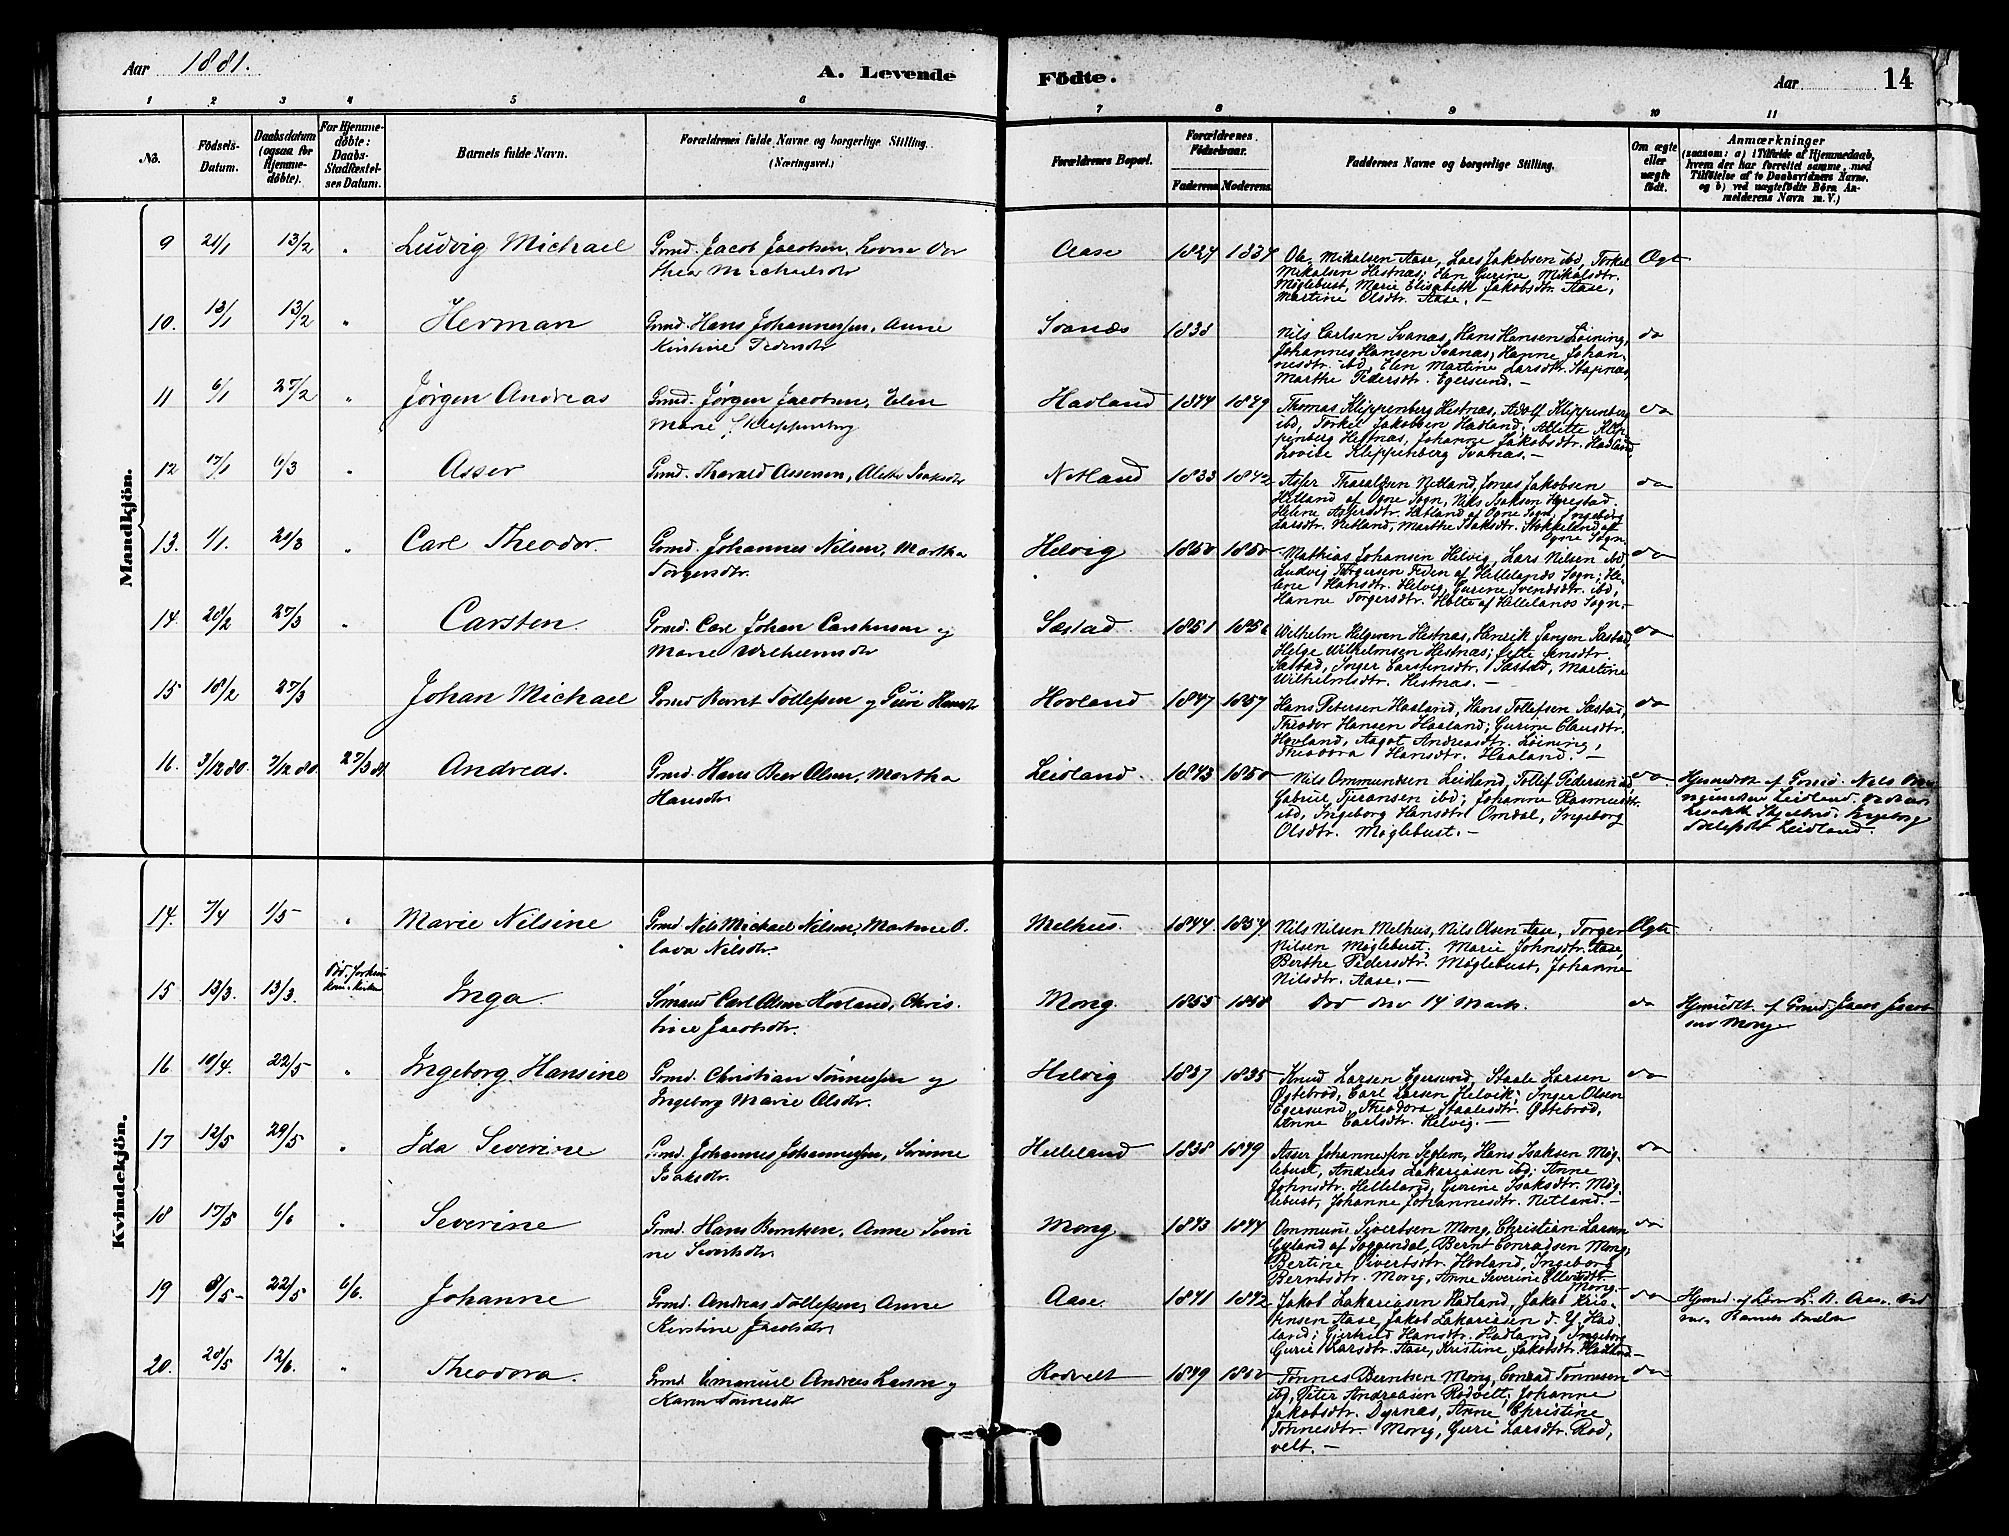 Aar 1881.
A. Levende
Födte.
Aar
14
1 2 3 4 5 6 7 8 9 10 11
No.
Födsels-Datum.
Daabsdatum (ogsaa for Hjemme-döbte).
For Hjemme-döbte: Daabs-Stadfæstel-ses Datum.
Barnets fulde Navn.
Forældrenes fulde Navne og borgerlige Stilling. (Næringsvei.)
Forældrenes Bopæl.
Forældrenes Födselsaar.
Faderens. Moderens.
Faddernes Navne og borgerlige Stilling.
Om ægte eller uægte födt.
Anmærkninger
(saasom: a) i Tilfælde af Hjemmedaab,
hvem der har forrettet samme, med
Tilföielse af to Daabsvidners Navne.
og b) ved uægtefödte Börn An-
melderens Navn m. V.)
Mandkjön.
9 21/1 13/2 " Ludvig Michael Grmd. Jacob Jacobsen, Aase 1827 1837
Ole Mikalsen Aase, Lars Jakobsen ibd, Torkel
Mikalsen Hestnæs; Elen Gurine Mikalsdtr.
Møglebust, Marie Elisabeth Jakobsdtr. Aase,
Martine Olsdtr. Aase. -
10. 13/1 13/2 " Herman Grmd. Hans Johannessen, Anne
Kirstine Pedersdtr Svanæs 1838 do
Nils Carlsen Svanæs, Hans Hansen Løining,
Johannes Hansen Svanæs; Hanne Johan-
nesdtr. ibd, Elen Martine Larsdtr. Stapnæs,
Marthe Pedersdtr. Egersund. -
11 6/1 27/2 " Jørgen Andreas Grmd. Jørgen Jacobsen, Elen
Marie Klippenberg Hadland 1844 1849 do
Thomas Klippenberg Hestnæs, Adolf Klippenberg
ibd, Torkel Jakobsen Hadland; Alette Klip-
penberg Hestnæs, Johanne Jakobsdtr. Hadland,
Lovise Klippenberg Svanæs. -
12 17/1 6/3 " Asser Grmd. Tharald Assersen, Alette Isaksdtr Netland 1833 1842 do
Asser Tharaldsen Netland, Jonas Jakobsen
Hetland af Ogne Sogn, Nils Isaksen Hyrestad
Helene Assersdtr. Hetland af Ogne Sogn, Ingeborg
Larsdtr. Netland, Marthe Isaksdtr. Stokkeland af
Ogne Sogn.
13. 1/1. 21/3 " Carl Theodor. Grmd. Johannes Nilsen, Martha
Torgersdtr. Helvig 1850 1850 do
Mathias Johansen Helvig, Lars Nilsen ibd,
Ludvig Torgersen Feden af Hellelands Sogn; He-
lene Hansdtr. Helvig, Gurine Svendsdtr. ibd,
Hanne Torgersdtr. Holte af Hellelands Sogn. -
14. 20/2 27/3 " Carsten. Grmd. Carl Johan Carstensen og
Marie Wilhelmsdtr Sæstad 1851 1856 do
Wilhelm Helgesen Hestnæs, Henrik Jansen Sæstad,
Helge Wilhelmsen Hestnæs; Jensdtr.
Sæstad, Inger Carstensdtr. Sæstad, Martine
Wilhelmsdtr. Hestnæs. -
15 18/2 27/3 Johan Michael Grmd Bernt Tollefsen og Guri Hansdtr Hovland 1847 1857 do
Hans Petersen Haaland, Hans Tollefsen Sæstad,
Theodor Hansen Haaland; Gurine Clausdtr.
Hovland, Aagot Andreasdtr. Løining,
Theodora Hansdtr. Haaland. -
16. 3/12 80. 7/12 80. 27/3 81 Andreas. Grmd. Hans Beer Olsen, Martha
Hansdtr Leidland. 1843 1850 do
Nils Ommundsen Leidland, Tollef Pedersen ibd
Gabriel Tjeransen ibd; Johanne Rasmusdtr.
ibd, Ingeborg Hansdtr. Omdal, Ingeborg
Olsdtr. Møglebust. -
Hjemmedøbt af Grmd. Nils Om-
mundsen Leidland.
Ingeborg
Leidland.
Kvindekjön.
14. 7/4 1/5 " Marie Nilsine Grmd Nils Michael Nilsen, Martine O-
lava Nilsdtr. Melhus. 1844 1854 Ægte
Nils Nilsen Melhus, Nils Olsen Aase, Torger
Nilsen Møglebust. Marie Johnsdtr. Aase,
Berthe Pedersdtr. Møglebust, Johanne
Nilsdtr. Aase. -
15 13/3. 13/3. Inga Carl Olsen Hovland, Chris-
tine Jacobsdtr. Mong. 1855 1858 Død den 14 Marts. do
Hjemmedt. af Grmd. Jacob Jacob-
sen Mong
16 10/4. 22/5 " Ingeborg Hansine Grmd. Christian Tønnessen og
Ingeborg Marie Olsdtr. Helvig 1837 1835 do
Knud Larsen Egersund, Staale Larsen
Østebrød, Carl Larsen Helvik; Inger Olsen
Egersund, Theodora Staalesdtr. Østebrød,
Anne Carlsdtr. Helvig. -
17 12/5 29/5 " Ida Severine Grmd. Johannes Johannessen, Severine
Isaksdtr. Helleland 1838 1849 do
Asser Johannessen Seglem, Hans Isaksen Møg-
lebust, Andreas Zakariasen ibd; Anne
Johnsdtr. Helleland, Gurine Isaksdtr. Møg-
lebust, Johanne Johannesdtr. Netland. -
18 17/5 6/6 " Severine Grmd. Hans Berntsen, Anne Severi
ne Sivertsdtr. Mong 1843 1844 do
Ommund Sivertsen Mong, Christian Larsen
Gyland af Soggendal, Bernt Conradsen Mong,
Bertine Sivertsdtr. Hovland, Ingeborg
Berntsdtr. Mong, Anne Severine Ellertsdtr.
Mong. -
19 8/5 22/5 6/6. Johanne Grmd. Andreas Tollefsen, Anne
Kirstine Jacobsdtr. Aase. 1841 1842 do
Jakob Zakariasen Hadland, Jakob Kris-
tensen Aase, Jakob Zakariasen d. Y. Had-
land; Gjertrud Hansdtr. Hadland, Ingeborg
Gurie Larsdtr. Aase, Kristine Jakobsdtr. Hadland. -
20. 28/5 12/6. " Theodora. Grmd. Emanuel Andreas Larsen og
Karen Tønnesdtr Rodvelt 1849 1852 do
Tønnes Berntsen Mong, Conrad Tønnesen
ibd, Peter Andreasen Rodvelt; Johanne
Jakobsdtr. Dyrnæs, Anne Christine
Tønnesdtr. Mong, Guri Larsdtr. Rod-
velt. -